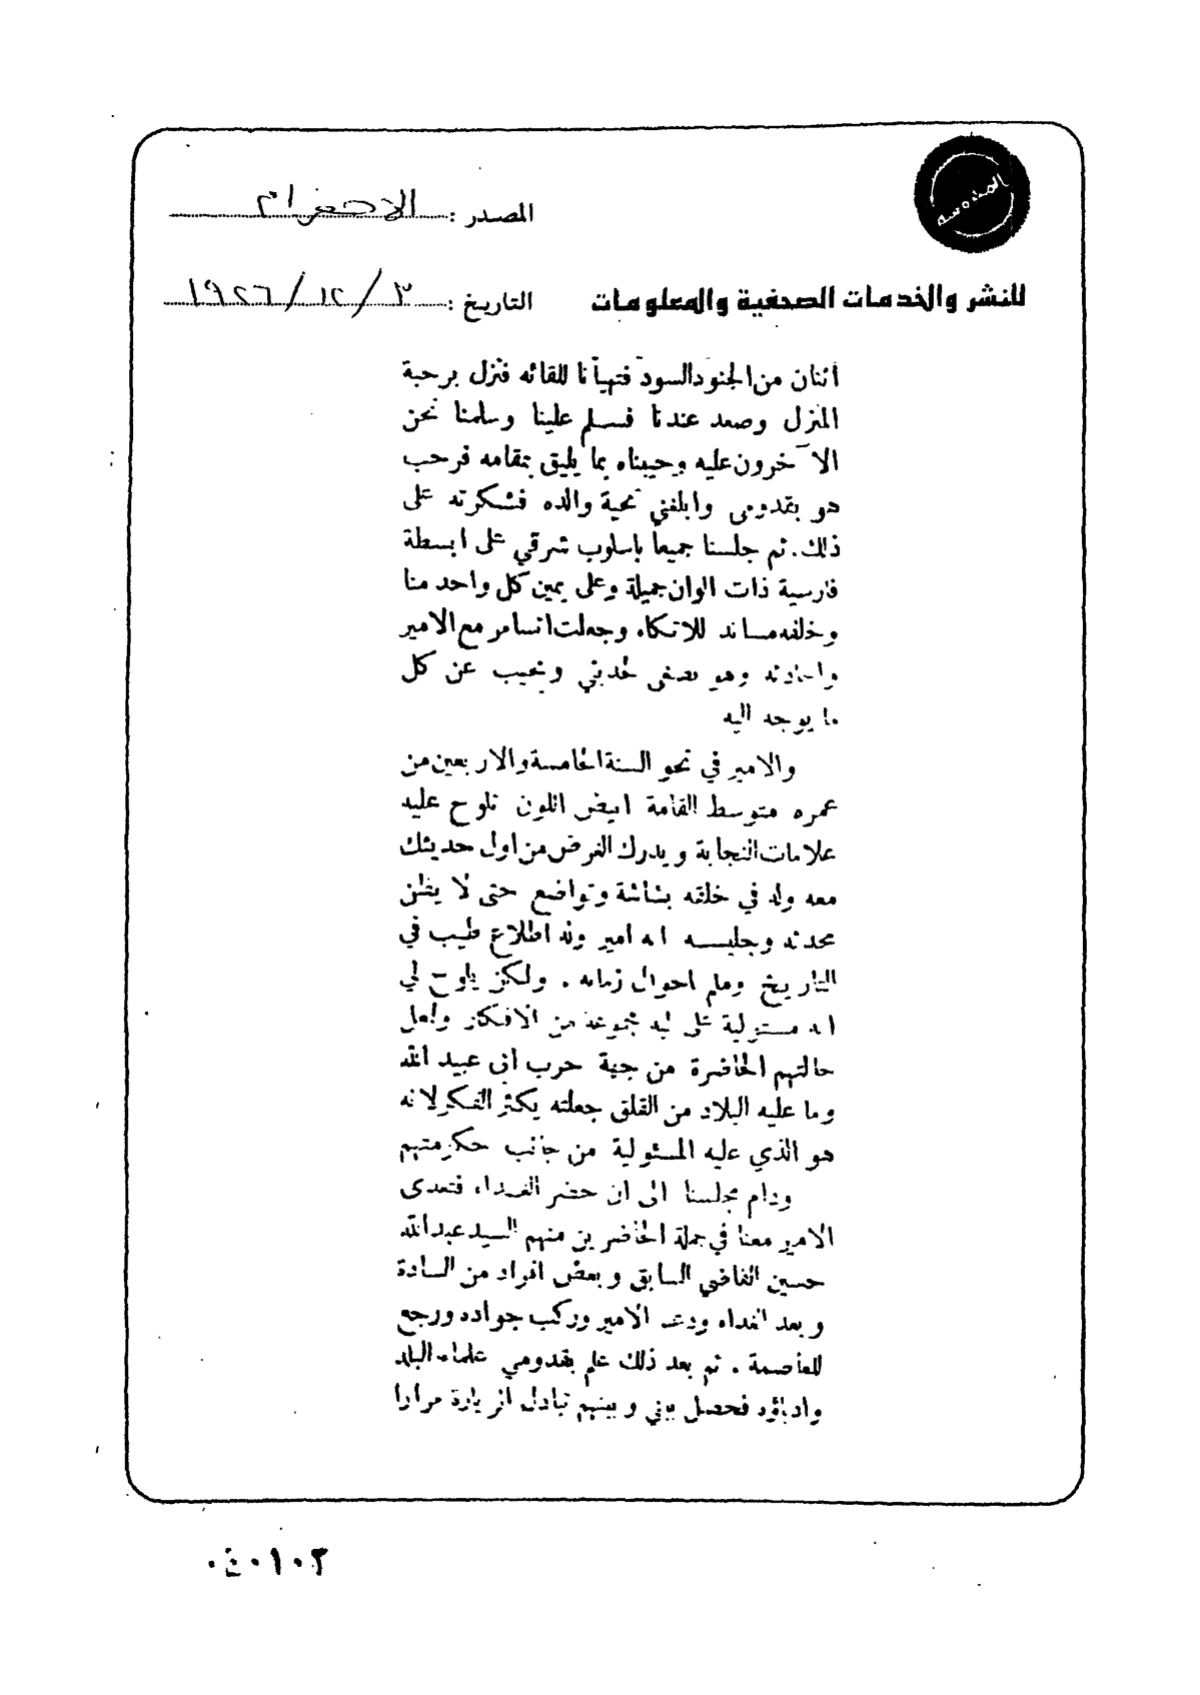 المصدر : الاهرام
للنشر والخدمات الصحفية والمعلومات
التاريخ : ٣ / ١٢ / ١٩٢٦
اثنان من الجنود السود فتهيأنا للقائه فنزل برحبة
المنزل وصعد عندنا فسلم علينا وسلمنا نحن
الآخرون عليه وحييناه بما يليق بمقامه فرحب
هو بقدومى وابلغني تحية والده فشكرته على
ذلك . ثم جلسنا جميعاً باسلوب شرقي على ابسطة
فارسية ذات الوان جميلة وعلى يمين كل واحد منا
وخلفه مساند للاتكاء وجعلت اتسامر مع الامير
واحادثه وهو يصغى لحديثي ويجيب عن كل
ما يوجه اليه
والامير في نحو السنة الخامسة والاربعين من
عمره متوسط القامة ابيض اللون تلوح عليه
علامات النجابة ويدرك الغرض من اول حديثك
معه وله في خلقه بشاشة وتواضع حتى لا يظن
محدثه وجليسه انه امير وله اطلاع طيب في
التاريخ وعلم احوال زمانه . ولكن يلوح لي
انه مستولية على لبه مجموعة من الافكار ولعل
حالتهم الحاضرة من جهة حرب ابى عبيد الله
وما عليه البلاد من القلق جعلته يكثر الفكر لانه
هو الذي عليه المسئولية من جانب حكومتهم
ودام مجلسنا الى ان حضر الغداء فتغدى
الامير معنا في جملة الحاضرين منهم السيد عبدالله
حسين القاضي السابق وبعض افراد من السادة
وبعد الغداء ودعه الامير وركب جواده ورجع
للعاصمة . ثم بعد ذلك علم بقدومي علماء البلد
وادباؤه فحصل بيني وبينهم تبادل الزيارة مرارا